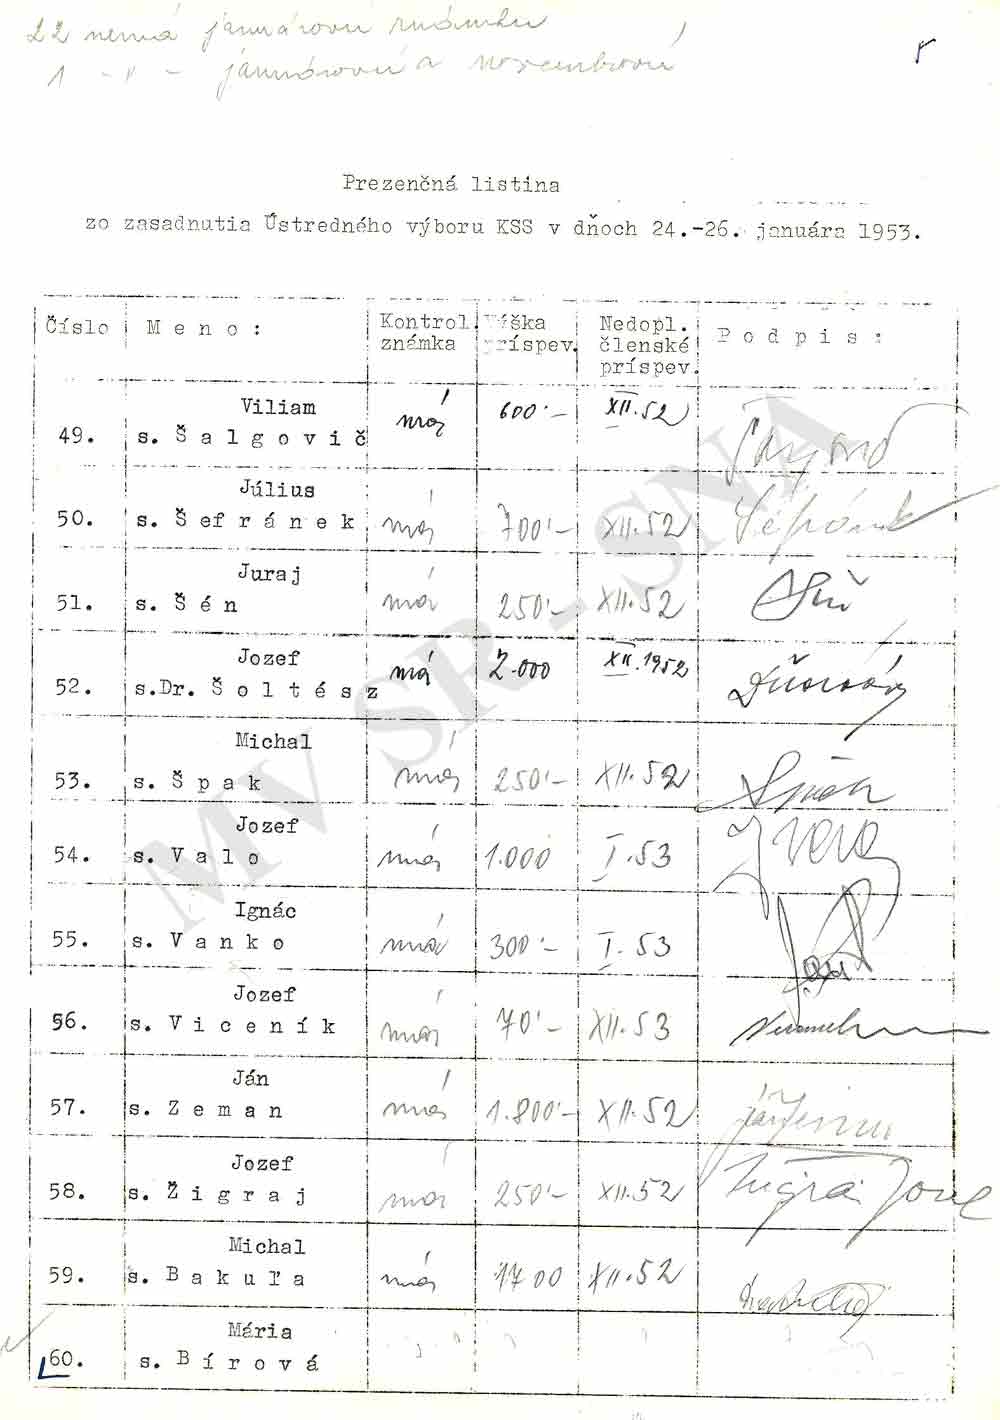 22 nemá januárovú známku
1 -"- januárovú a novembrovú
Prezenčná listina
zo zasadnutia Ústredného výboru KSS v dňoch 24.-26. januára 1953.
Číslo Meno: Kontrol. známka Výška príspev. Nedopl. členské príspev. Podpis:
Viliam
49. s. Šalgovič má 600'- XII.52
Július
50. s. Šefránek má 700'- XII.52
Juraj
51. s. Šén má 250'- XII.52
Jozef
52. s.Dr. Šoltész má 2.000 XII.1952
Michal
53. s. Špak má 250'- XII.52
Jozef
54. s. Valo má 1.000 I.53
Ignác
55. s. Vanko má 300'- I.53
Jozef
56. s. Viceník má 70'- XII.53
Ján
57. s. Zeman má 1.800'- XII.52
Jozef
58. s. Žigraj má 250'- XII.52
Michal
59. s. Bakuľa má 1700 XII.52
Mária
60. s. Bírová
MV SR - SNA